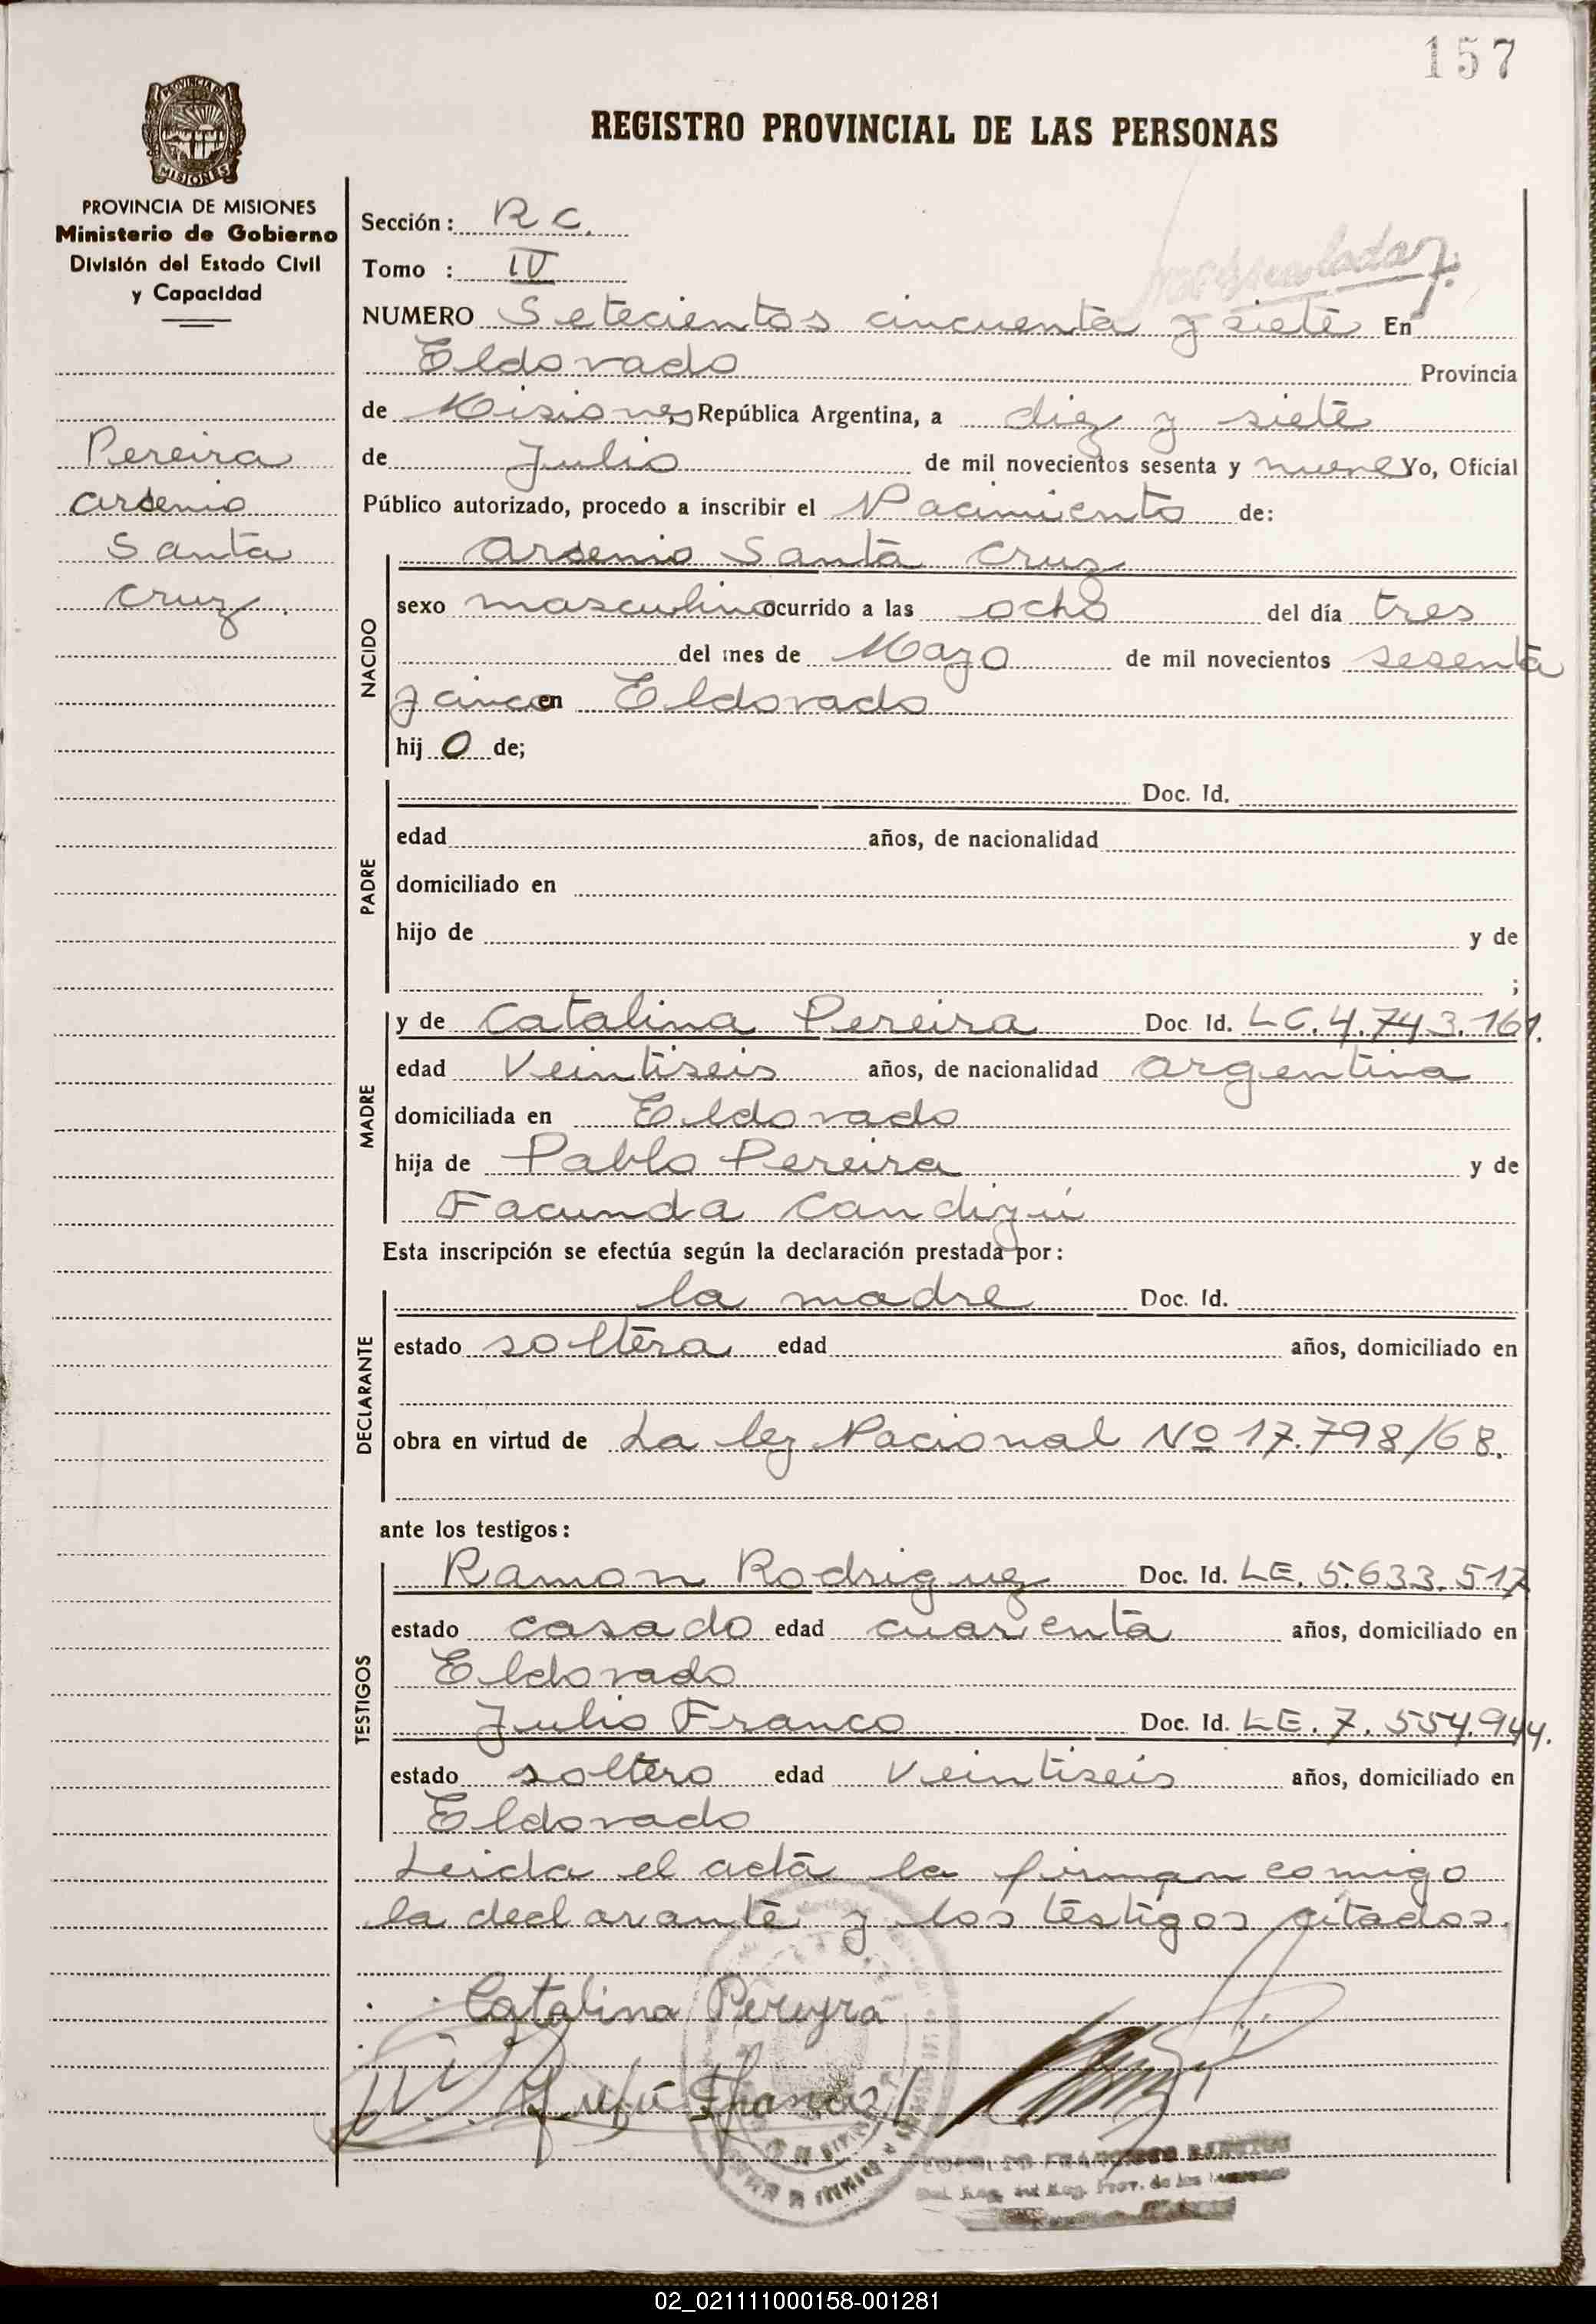 157
REGISTRO PROVINCIAL DE LAS PERSONAS
PROVINCIA DE
MISIONES
PROVINCIA DE MISIONES
Ministerio de Gobierno
División del Estado Civil
y Capacidad
Pereira
Arsenio
Santa
Cruz.
Sección: R C.
Tomo : IV
NUMERO Setecientos cincuenta y siete En
Eldorado Provincia
de Misiones República Argentina, a diez y siete
de Julio de mil novecientos sesenta y nueve Yo, Oficial
Público autorizado, procedo a inscribir el Nacimiento de:
NACIDO
Arsenio Santa Cruz
sexo masculino ocurrido a las ocho del día tres
del mes de Mayo de mil novecientos sesenta
y cinco en Eldorado
hij o de;
PADRE
Doc. Id.
edad años, de nacionalidad
domiciliado en
hijo de y de
;
MADRE
y de Catalina Pereira Doc Id. LC. 4.743.161.
edad Veintiseis años, de nacionalidad argentina
domiciliada en Eldorado
hija de Pablo Pereira y de
Facunda Candizú
Esta inscripción se efectúa según la declaración prestada por:
DECLARANTE
la madre Doc. Id.
estado soltera edad años, domiciliado en
obra en virtud de La ley Nacional Nº 17.798/68.
ante los testigos:
TESTIGOS
Ramon Rodriguez Doc. Id. LE. 5.633.517
estado casado edad cuarenta años, domiciliado en
Eldorado
Julio Franco Doc. Id. LE. 7.554.944.
estado soltero edad Veintiseis años, domiciliado en
Eldorado
Leida el acta la firman comigo
la declarante y los testigos citados.
Catalina Pereyra
02_021111000158-001281